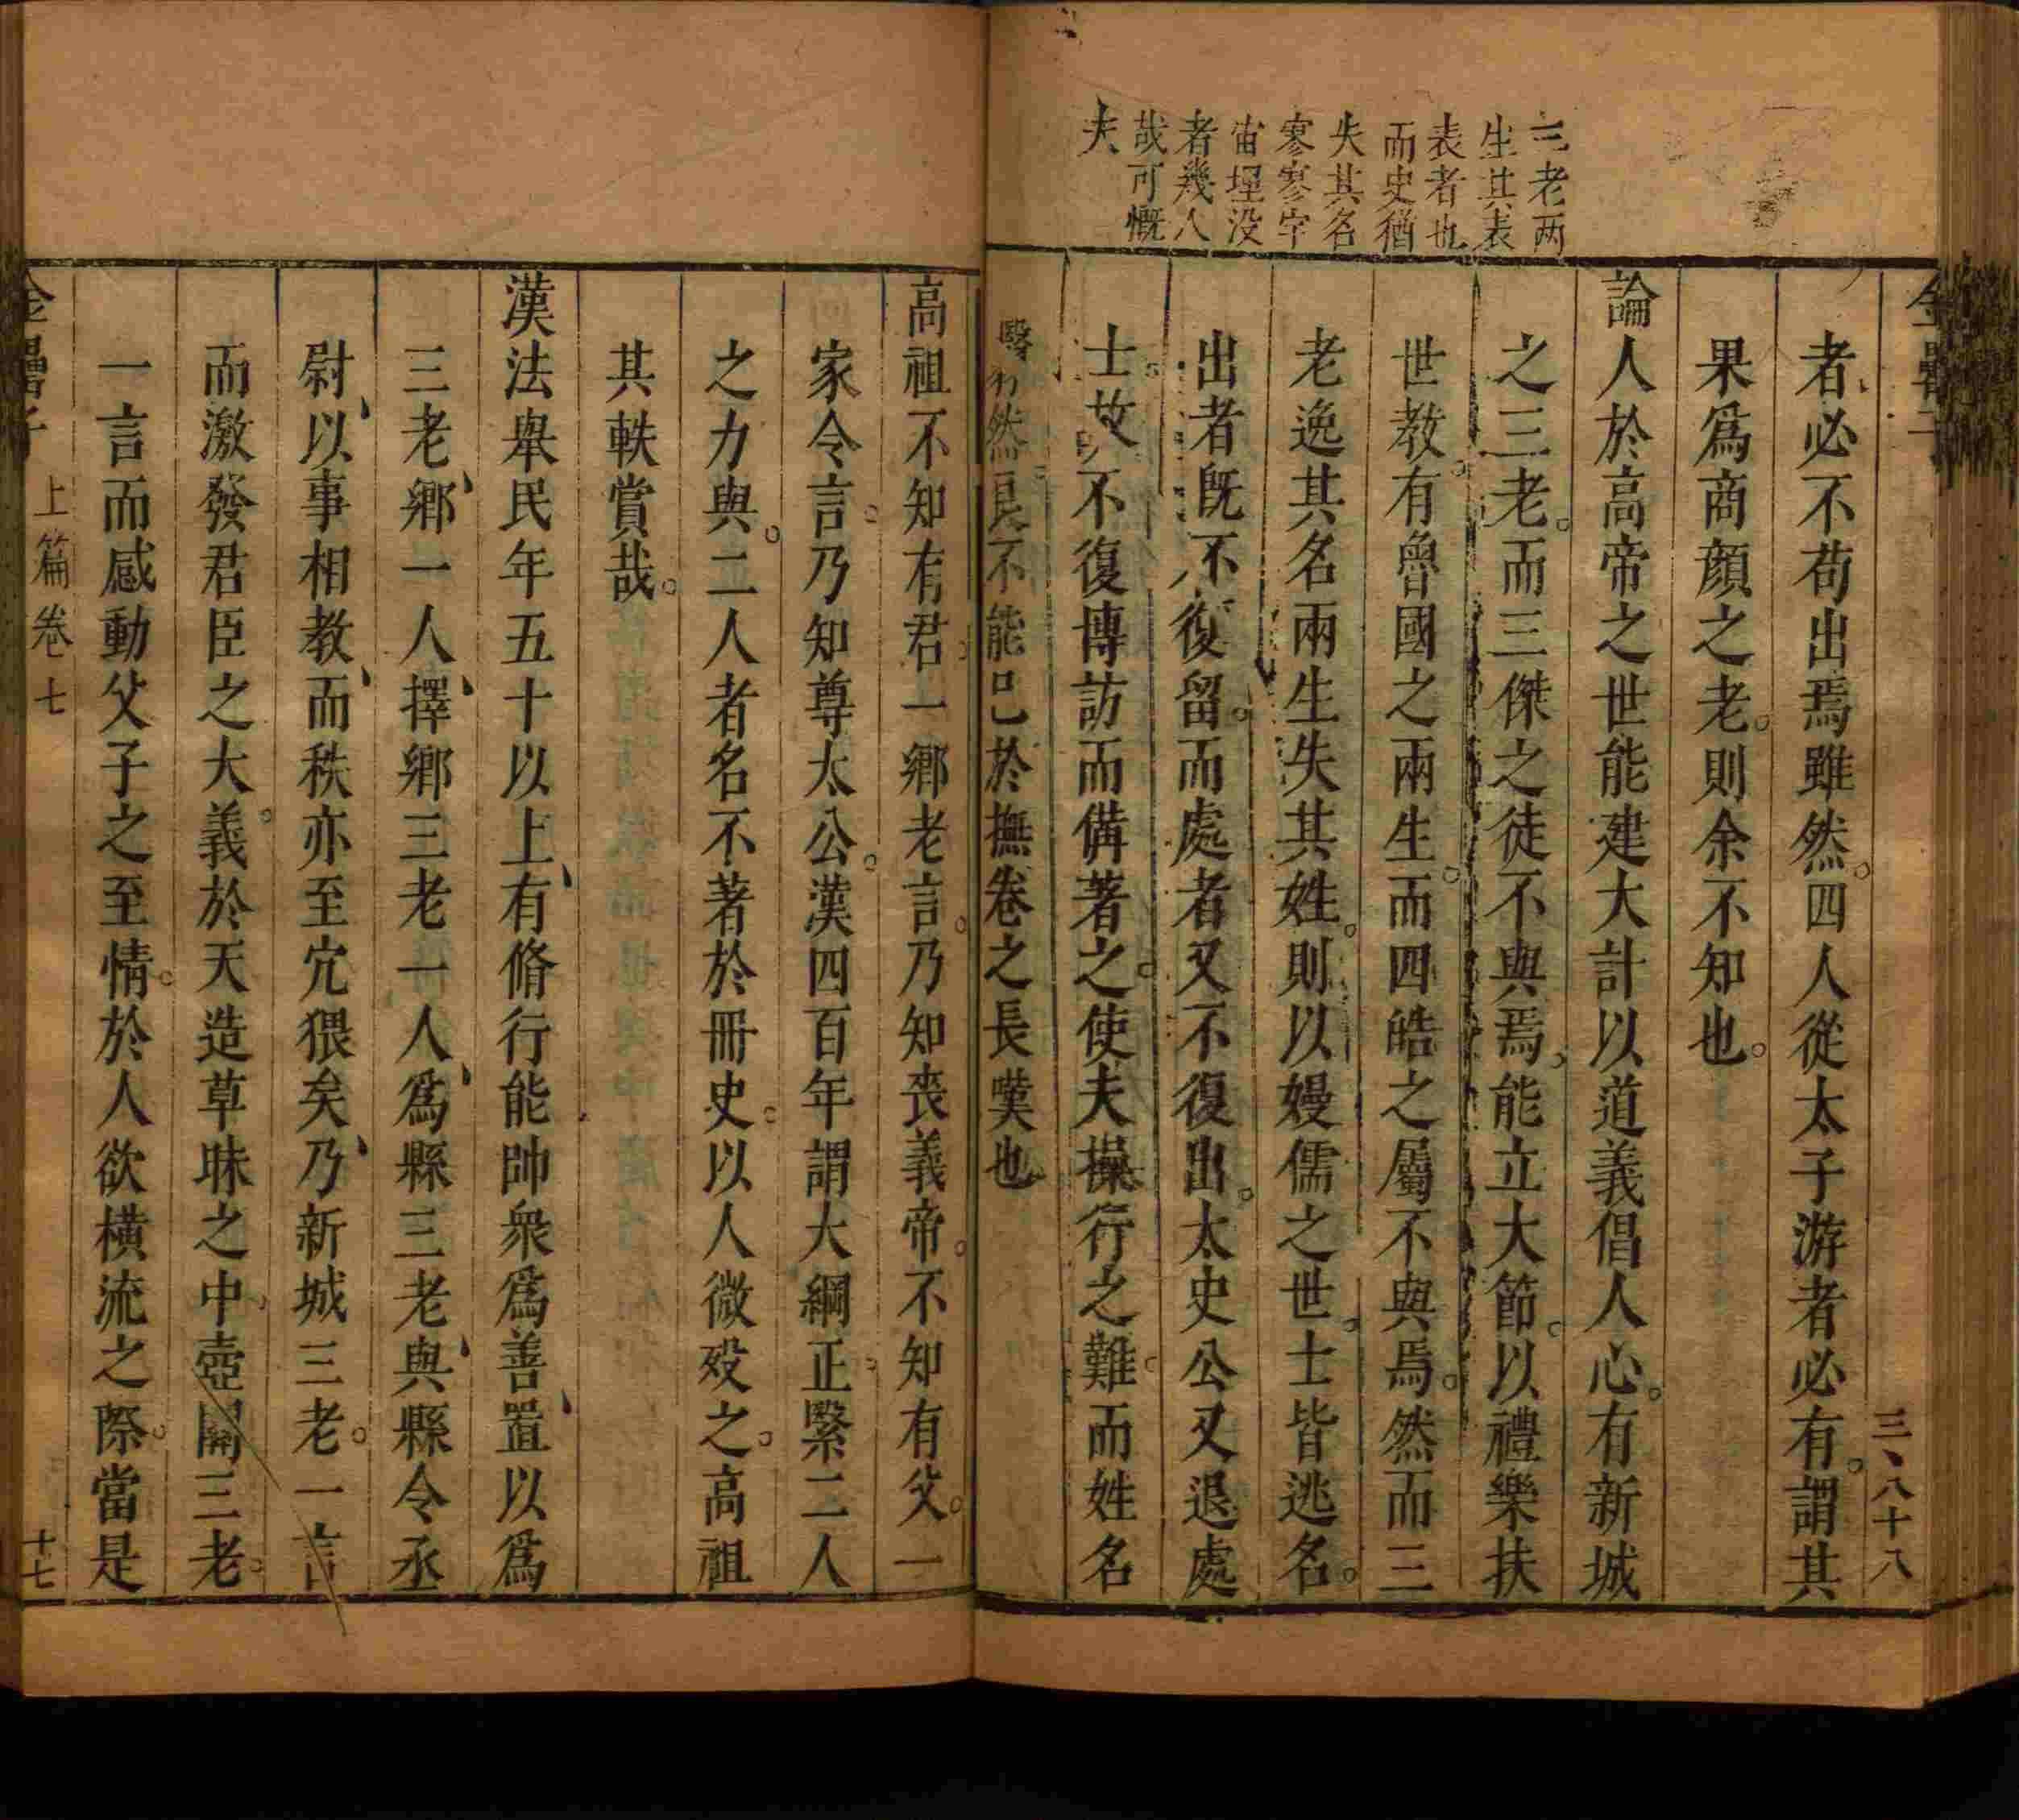 三老两
生其表
表者也
而史猶
失其名
寥寥宇
宙埋没
者幾人
哉可慨
夫
三八十八
者必不苟出焉雖然四人從太子游者必有謂其
果爲商顔之老則余不知也
論人於高帝之世能建大計以道義倡人心有新城
之三老而三傑之徒不與焉能立大節以禮樂扶
世教有魯國之兩生而四皓之屬不與焉然而三
老逸其名兩生失其姓則以嫚儒之世士皆逃名
出者旣不復留而處者又不復出太史公又退處
士故不復博訪而備著之使夫操行之難而姓名
然良不能已於撫卷之長嘆也
高祖不知有君一鄉老言乃知喪義帝不知有父一
家令言乃知尊太公漢四百年謂大綱正緊二人
之力與二人者名不著於冊史以人微歿之高祖
其軼賞哉
漢法舉民年五十以上有脩行能帥衆爲善置以爲
三老鄉一人擇鄉三老一人爲縣三老與縣令丞
尉以事相教而秩亦至宂猥矣乃新城三老一言
而激發君臣之大義於天造草昧之中壺關三老
一言而感動父子之至情於人欲橫流之際當是
上篇卷七
十七